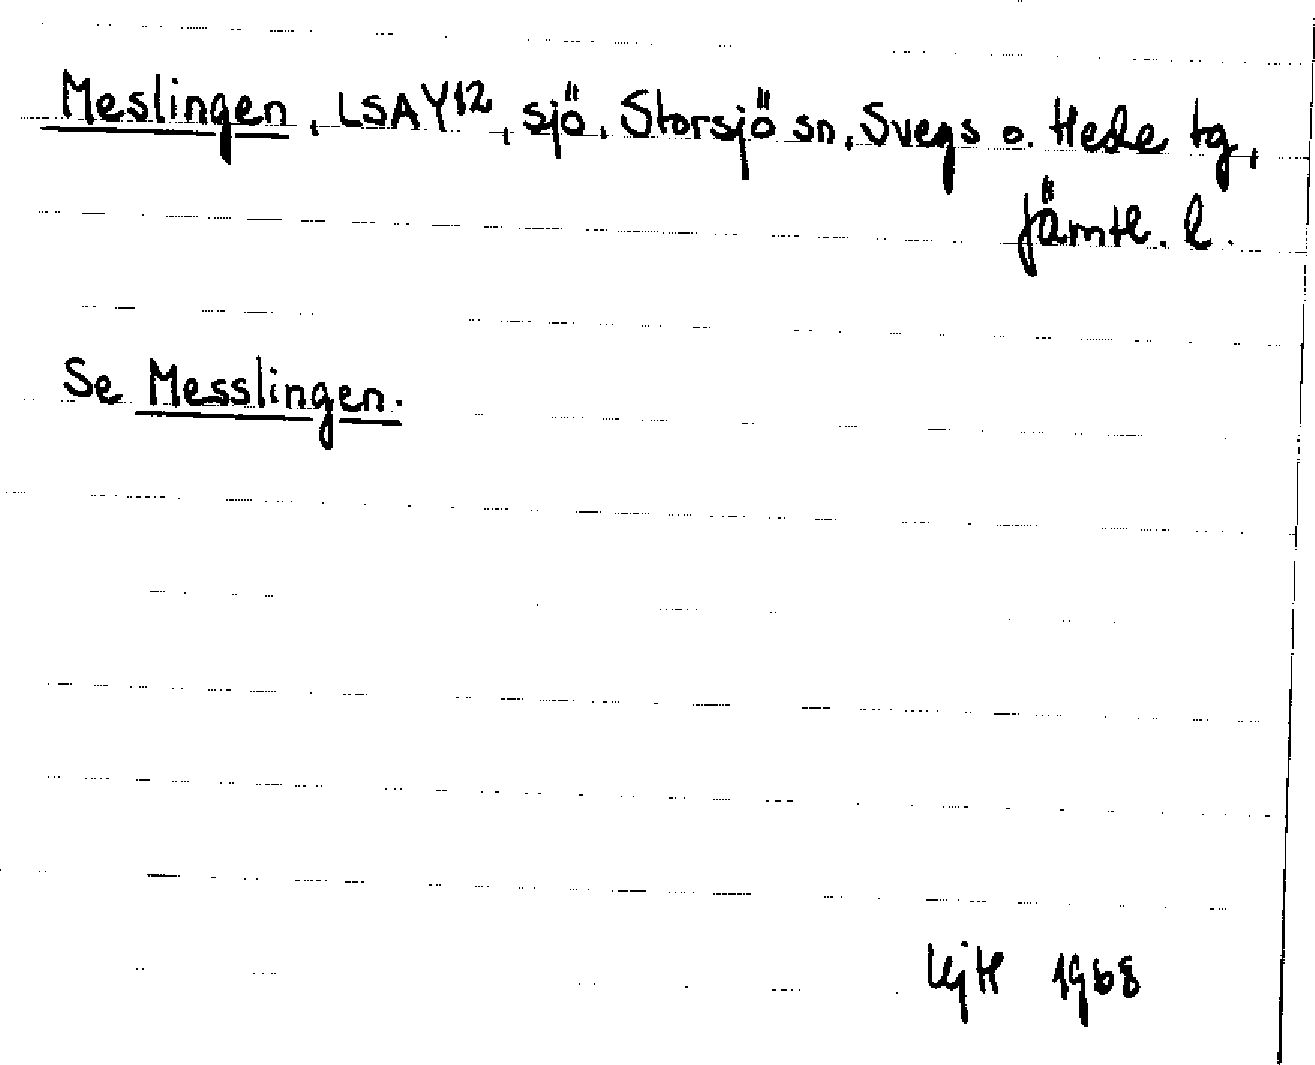 Meslingen, LSA Y12, sjö, Storsjö sn, Svegs o. Hede tg,
Jämtl. l.
Se Messlingen.
1968